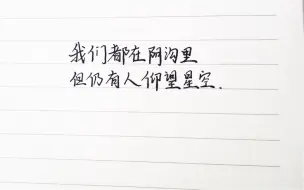 我们都在阴沟里
但仍有人仰望星空.